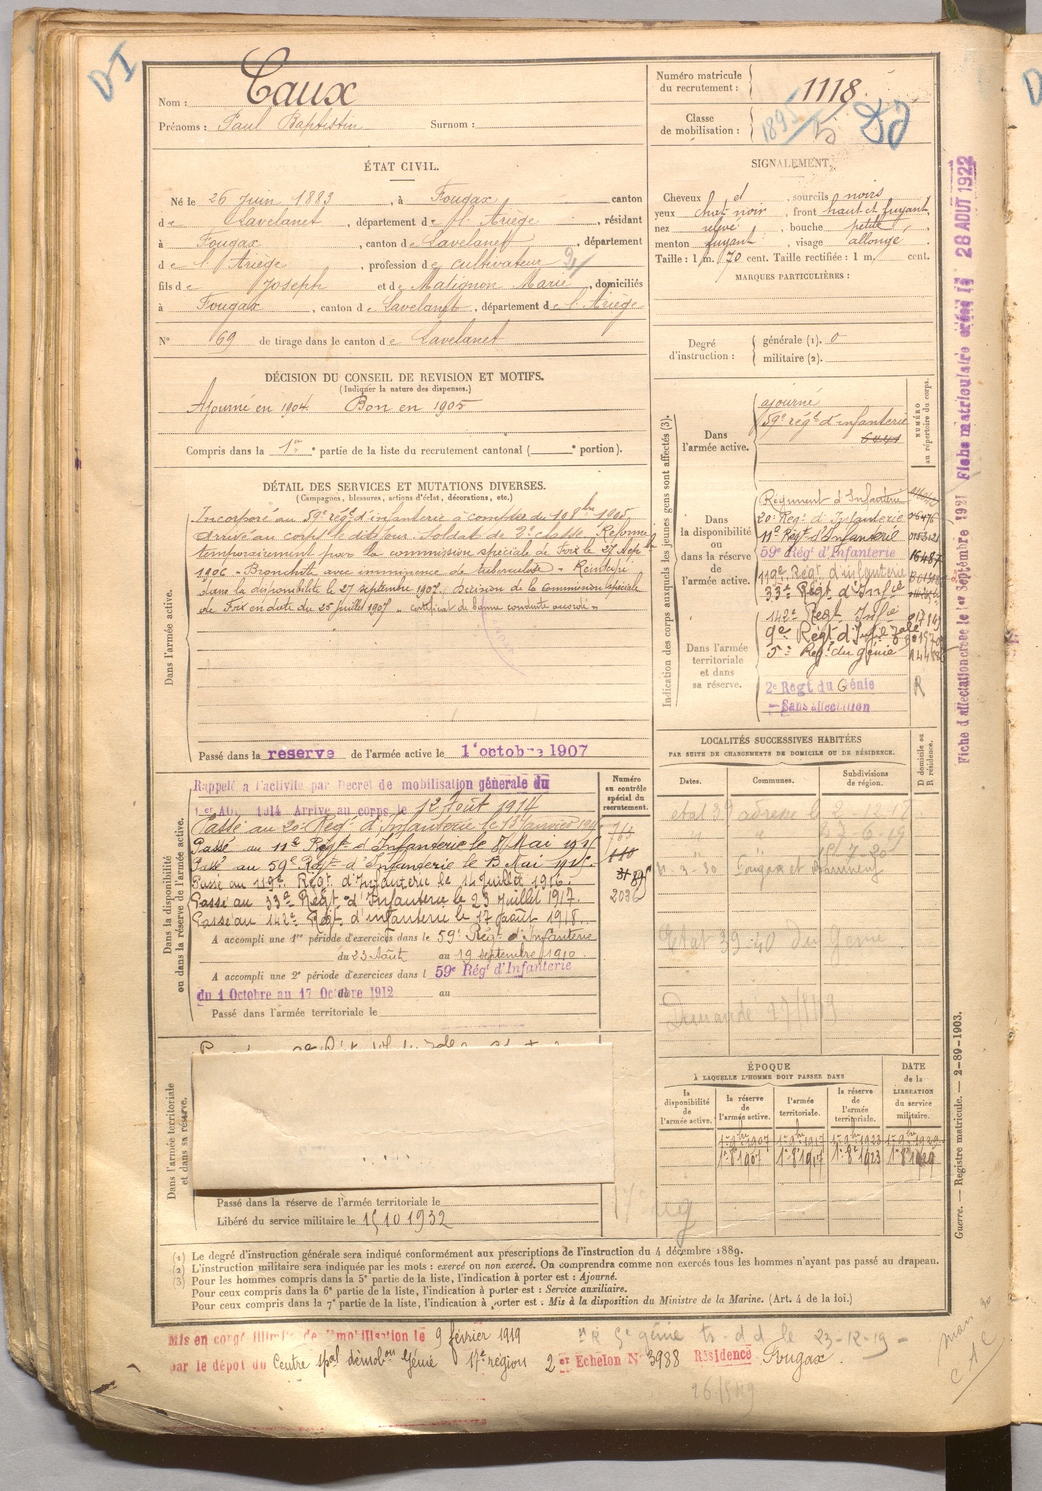 DI
Nom : Caux
Prénoms : Paul Baptistin Surnom :
Numéro matricule du recrutement : 1118
Classe de mobilisation : 1895
ÉTAT CIVIL.
Né le 26 Juin 1883, à Fougax canton
de Lavelanet, département de l'Ariège, résidant
à Fougax, canton de Lavelanet, département
de l'Ariège, profession de cultivateur
fils de Joseph et de Matignon Marie, domiciliés
à Fougax, canton de Lavelanet, département de l'Ariège
N° 69 de tirage dans le canton de Lavelanet
SIGNALEMENT.
Cheveux et, sourcils noirs
yeux chat noir, front haut et fuyant
nez relevé, bouche petite
menton fuyant, visage allongé
Taille : 1 m. 70 cent. Taille rectifiée : 1 m. cent.
MARQUES PARTICULIÈRES :
Degré d'instruction : générale (1). 0
militaire (2).
DÉCISION DU CONSEIL DE REVISION ET MOTIFS.
(Indiquer la nature des dispenses.)
Ajourné en 1904. Bon en 1905
Compris dans la 1re partie de la liste du recrutement cantonal ( e portion).
DÉTAIL DES SERVICES ET MUTATIONS DIVERSES.
(Campagnes, blessures, actions d'éclat, décorations, etc.)
Dans l'armée active.
Incorporé au 59e régt d'infanterie à compter du 8bre 1905
Arrivé au corps le dit jour. Soldat de 2e classe. Réformé
temporairement par la commission spéciale de Foix le 27 Sept
1906 - Bronchite avec imminence de tuberculose - Réintégré
dans la disponibilité le 27 septembre 1907. Décision de la Commission spéciale
de Foix en date du 25 juillet 1907 - certificat de bonne conduite accordé -
Passé dans la réserve de l'armée active le 1er octobre 1907
Indication des corps auxquels les jeunes gens sont affectés (3).
NUMÉRO au répertoire du corps.
Dans l'armée active.
ajourné
59e régt d'infanterie
Dans la disponibilité ou dans la réserve de l'armée active.
Régiment d'Infanterie
20e Régt d'Infanterie
11e Régt d'Infanterie
59e Régt d'Infanterie 16487
119e Régt d'infanterie
33e Régt d'Infie
Dans l'armée territoriale et dans sa réserve.
142e Régt Infie
9e Régt d'Infie
5e Régt du génie
2e Régt du Génie R
Sans affectation
Fiche d'affectation créée le 1er Septembre 1921 Fiche matriculaire créée le 28 AOUT 1922
LOCALITÉS SUCCESSIVES HABITÉES
PAR SUITE DE CHANGEMENTS DE DOMICILE OU DE RÉSIDENCE.
Dates. Communes. Subdivisions de région. D domicile ou R résidence.
Etat 39-40 du Génie
Demandé
Dans la disponibilité ou dans la réserve de l'armée active.
Numéro au contrôle spécial du recrutement.
Rappelé à l'activité par Décret de mobilisation générale du
1er AOU 1914 Arrivé au corps le 12 Août 1914
Passé au 20e Régt d'Infanterie le 13 Janvier
Passé au 11e Régt d'Infanterie le 8 Mai
Passé au 59e Régt d'Infanterie le 13 Mai
Passé au 119e Régt d'Infanterie le 14 Juillet 1916.
Passé au 33e Régt d'Infanterie le 23 Juillet 1917. 2036
Passé au 142e Régt d'infanterie le 17 août 1918.
A accompli une 1re période d'exercices dans le 59e Régt d'Infanterie
du 23 Août au 19 septembre 1910.
A accompli une 2e période d'exercices dans l 59e Régt d'Infanterie
du 1 Octobre au 17 Octobre 1912 au
Passé dans l'armée territoriale le
Dans l'armée territoriale et dans sa réserve.
Passé dans la réserve de l'armée territoriale le
Libéré du service militaire le 15 10 1932
ÉPOQUE
À LAQUELLE L'HOMME DOIT PASSER DANS
la disponibilité de l'armée active. la réserve de l'armée active. l'armée territoriale. la réserve de l'armée territoriale.
DATE de la LIBÉRATION du service militaire.
1er 8 1907 1er 8 1917 1er 8 1923 1er 8 1929
Guerre. — Registre matricule. — 2-89-1903.
(1) Le degré d'instruction générale sera indiqué conformément aux prescriptions de l'instruction du 4 décembre 1889.
(2) L'instruction militaire sera indiquée par les mots : exercé ou non exercé. On comprendra comme non exercés tous les hommes n'ayant pas passé au drapeau.
(3) Pour les hommes compris dans la 5e partie de la liste, l'indication à porter est : Ajourné.
Pour ceux compris dans la 6e partie de la liste, l'indication à porter est : Service auxiliaire.
Pour ceux compris dans la 7e partie de la liste, l'indication à porter est : Mis à la disposition du Ministre de la Marine. (Art. 4 de la loi.)
Mis en congé illimité de démobilisation le 9 février 1919
par le dépôt du Centre spal démobon Génie 17e région 2e Echelon N° 3988 Résidence Fougax.
5e génie 23-12-19